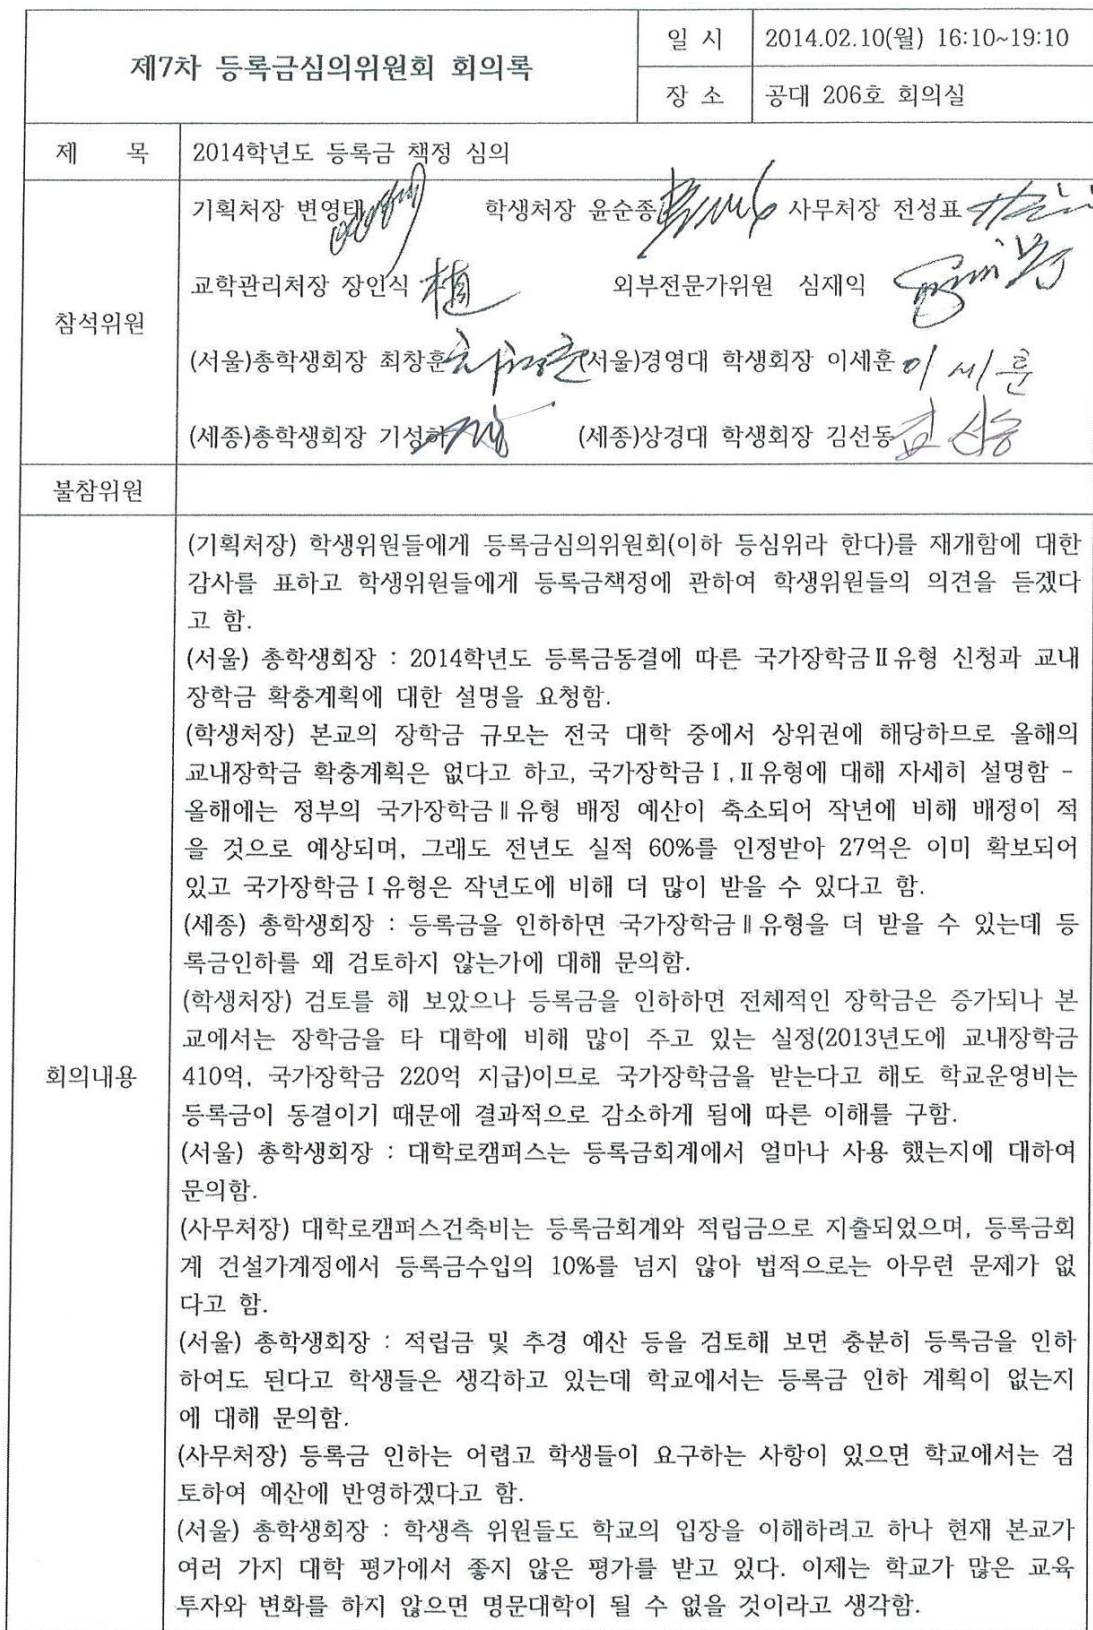 제7차 등록금심의위원회 회의록
일 시 2014.02.10(월) 16:10~19:10
장 소 공대 206호 회의실
제 목 2014학년도 등록금 책정 심의
참석위원
기획처장 변영태 학생처장 윤순종 사무처장 전성표
교학관리처장 장인식 植 외부전문가위원 심재익
(서울)총학생회장 최창훈 (서울)경영대 학생회장 이세훈 이세훈
(세종)총학생회장 기성하 (세종)상경대 학생회장 김선동
불참위원
회의내용
(기획처장) 학생위원들에게 등록금심의위원회(이하 등심위라 한다)를 재개함에 대한
감사를 표하고 학생위원들에게 등록금책정에 관하여 학생위원들의 의견을 듣겠다
고 함.
(서울) 총학생회장 : 2014학년도 등록금동결에 따른 국가장학금Ⅱ유형 신청과 교내
장학금 확충계획에 대한 설명을 요청함.
(학생처장) 본교의 장학금 규모는 전국 대학 중에서 상위권에 해당하므로 올해의
교내장학금 확충계획은 없다고 하고, 국가장학금Ⅰ,Ⅱ유형에 대해 자세히 설명함 -
올해에는 정부의 국가장학금Ⅱ유형 배정 예산이 축소되어 작년에 비해 배정이 적
을 것으로 예상되며, 그래도 전년도 실적 60%를 인정받아 27억은 이미 확보되어
있고 국가장학금Ⅰ유형은 작년도에 비해 더 많이 받을 수 있다고 함.
(세종) 총학생회장 : 등록금을 인하하면 국가장학금Ⅱ유형을 더 받을 수 있는데 등
록금인하를 왜 검토하지 않는가에 대해 문의함.
(학생처장) 검토를 해 보았으나 등록금을 인하하면 전체적인 장학금은 증가되나 본
교에서는 장학금을 타 대학에 비해 많이 주고 있는 실정(2013년도에 교내장학금
410억, 국가장학금 220억 지급)이므로 국가장학금을 받는다고 해도 학교운영비는
등록금이 동결이기 때문에 결과적으로 감소하게 됨에 따른 이해를 구함.
(서울) 총학생회장 : 대학로캠퍼스는 등록금회계에서 얼마나 사용 했는지에 대하여
문의함.
(사무처장) 대학로캠퍼스건축비는 등록금회계와 적립금으로 지출되었으며, 등록금회
계 건설가계정에서 등록금수입의 10%를 넘지 않아 법적으로는 아무런 문제가 없
다고 함.
(서울) 총학생회장 : 적립금 및 추경 예산 등을 검토해 보면 충분히 등록금을 인하
하여도 된다고 학생들은 생각하고 있는데 학교에서는 등록금 인하 계획이 없는지
에 대해 문의함.
(사무처장) 등록금 인하는 어렵고 학생들이 요구하는 사항이 있으면 학교에서는 검
토하여 예산에 반영하겠다고 함.
(서울) 총학생회장 : 학생측 위원들도 학교의 입장을 이해하려고 하나 현재 본교가
여러 가지 대학 평가에서 좋지 않은 평가를 받고 있다. 이제는 학교가 많은 교육
투자와 변화를 하지 않으면 명문대학이 될 수 없을 것이라고 생각함.